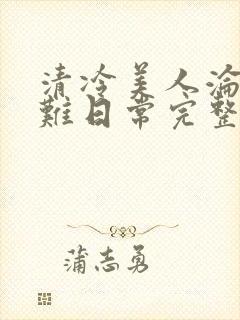 清冷美人淪
難日常完整
蒲志勇